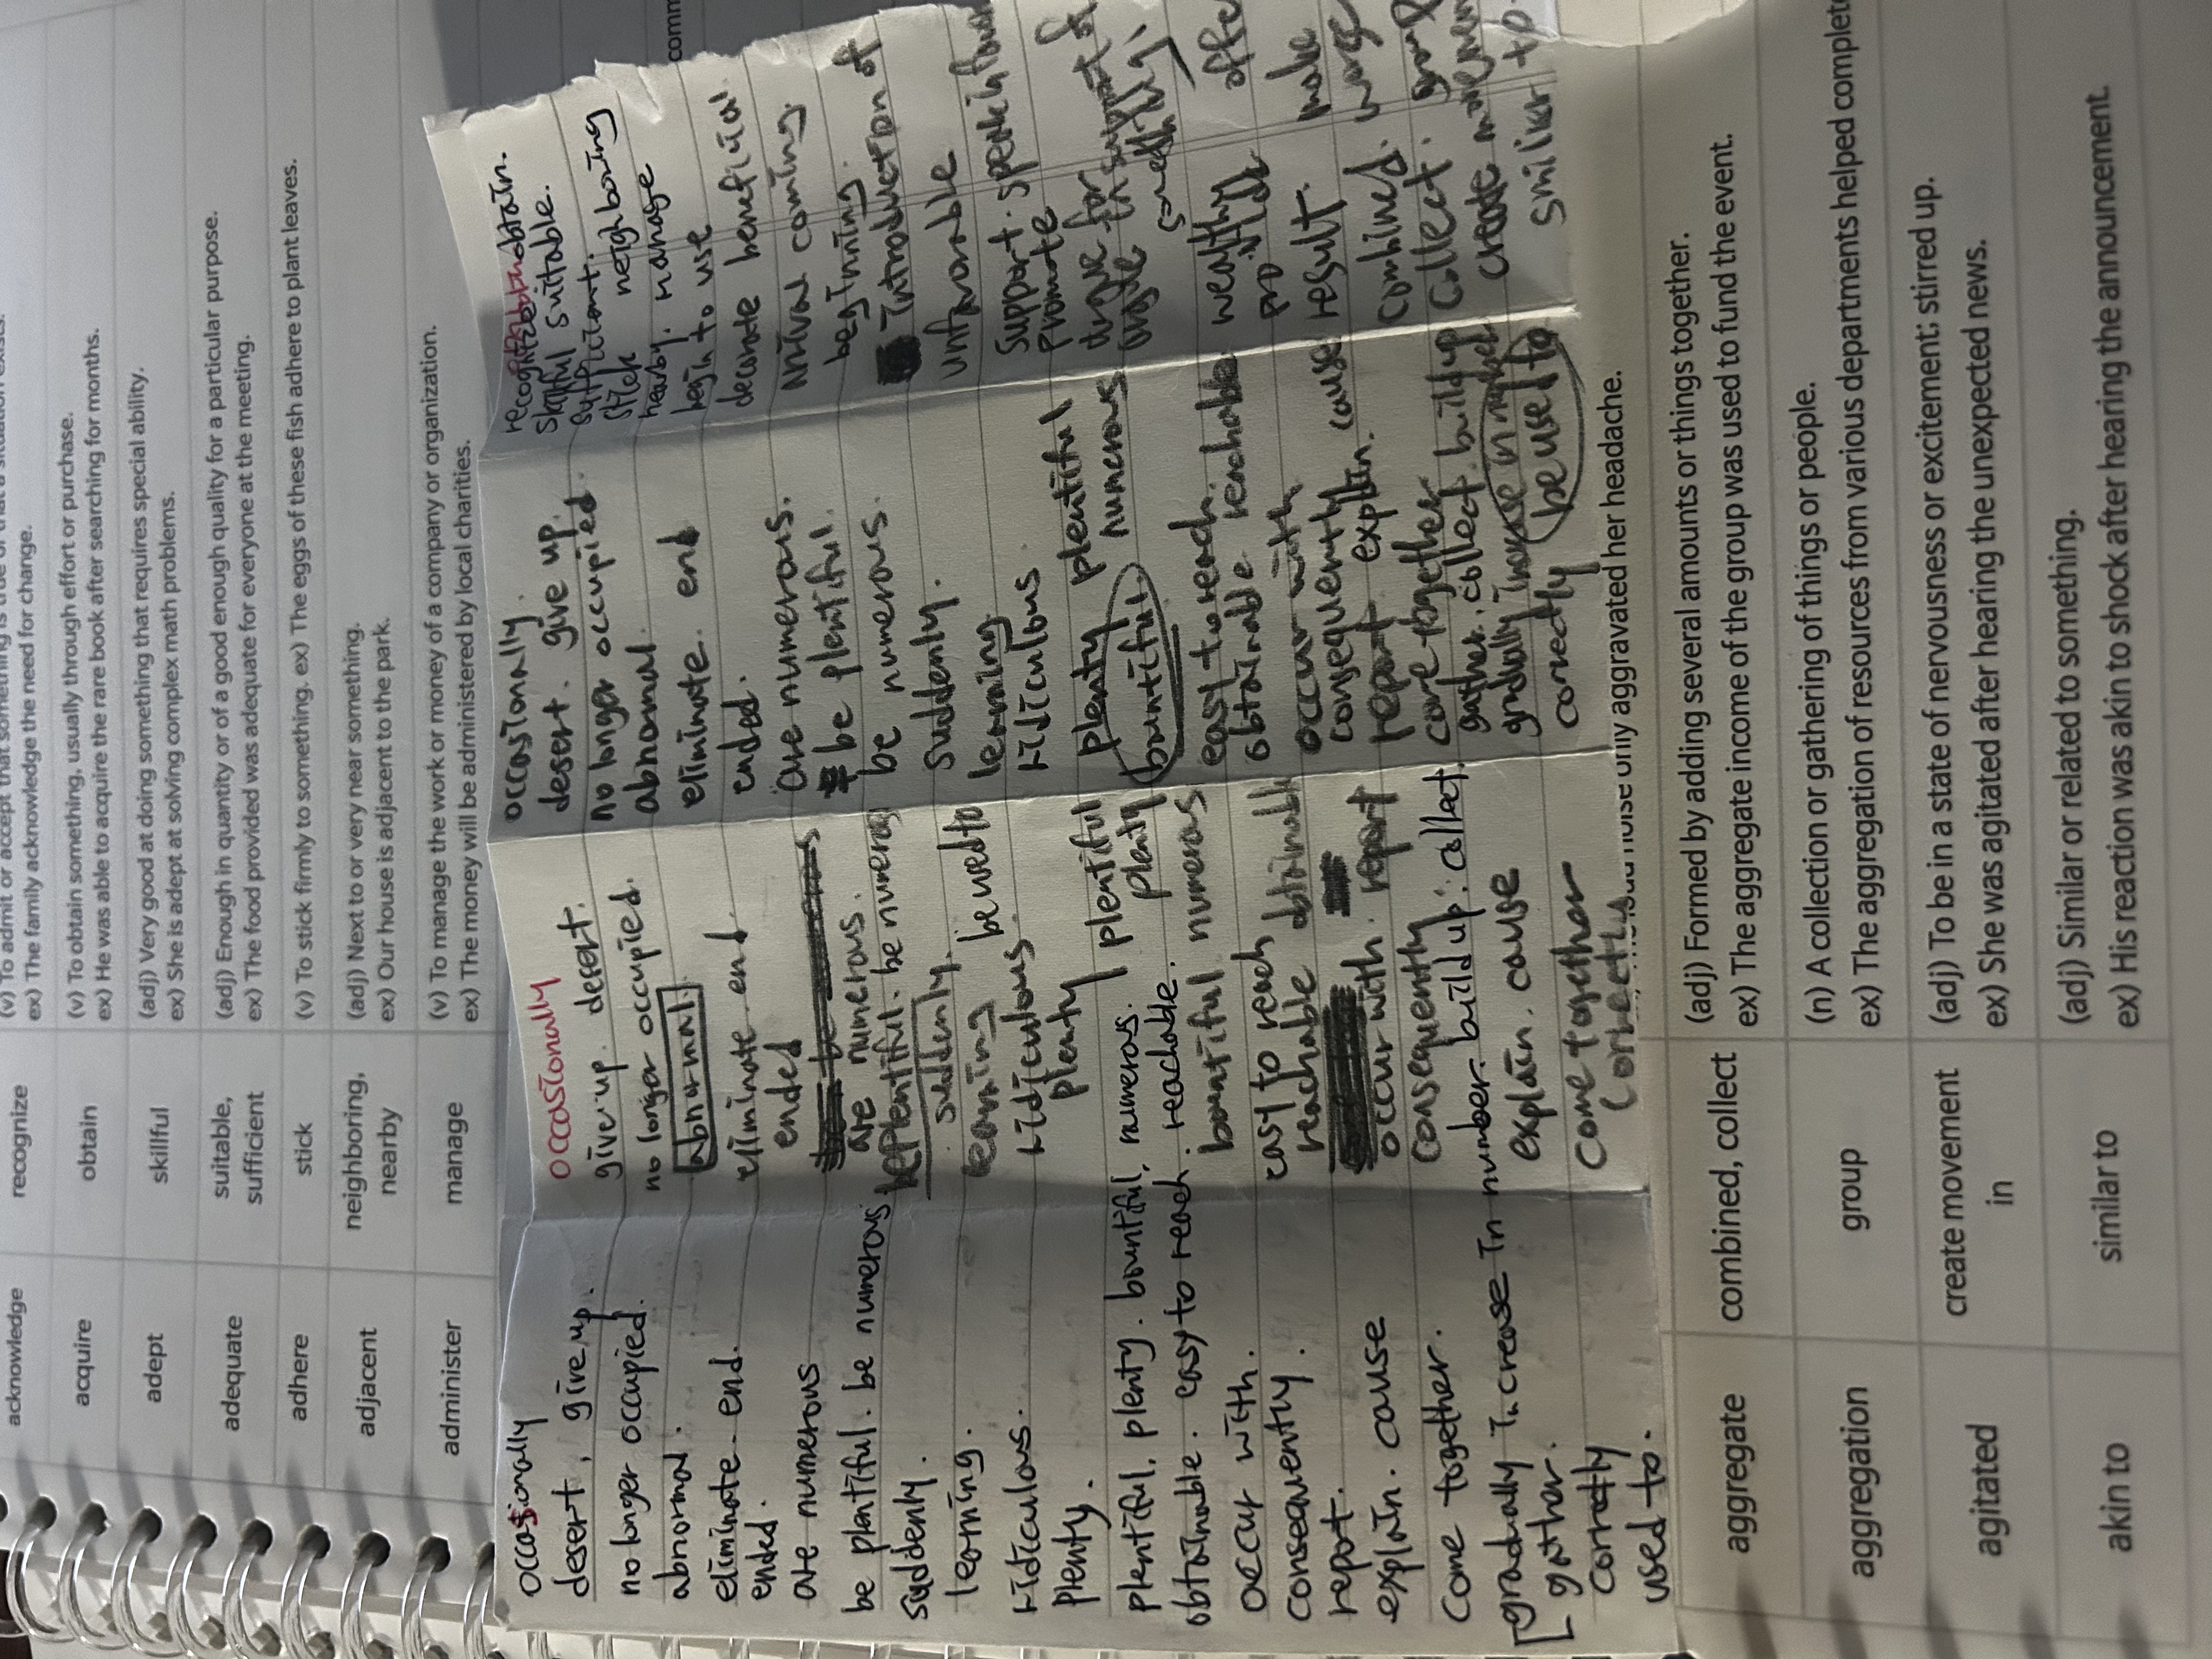 acknowledge
recognize
ex) The family acknowledge the need for change.
acquire
obtain
(v) To obtain something, usually through effort or purchase.
ex) He was able to acquire the rare book after searching for months.
adept
skillful
(adj) Very good at doing something that requires special ability.
ex) She is adept at solving complex math problems.
adequate
suitable,
sufficient
(adj) Enough in quantity or of a good enough quality for a particular purpose.
ex) The food provided was adequate for everyone at the meeting.
adhere
stick
(v) To stick firmly to something. ex) The eggs of these fish adhere to plant leaves.
adjacent
neighboring,
nearby
(adj) Next to or very near something.
ex) Our house is adjacent to the park.
administer
manage
(v) To manage the work or money of a company or organization.
ex) The money will be administered by local charities.
comm
occasionally
desert, give up.
no longer occupied.
abnormal.
eliminate. end.
ended.
are numerous
be plentiful. be numerous
suddenly.
learning.
ridiculous.
plenty.
plentiful. plenty. bountiful, numerous.
obtainable. easy to reach. reachable.
occur with.
consequently.
report.
explain. cause
Come together.
gradually increase in number. build up. collect.
gather.
correctly
used to.
occasionally
give up. desert.
no longer occupied.
abnormal.
eliminate. end.
ended
are numerous.
be plentiful. be numerous
suddenly.
learning be used to
ridiculous.
plenty plentiful
plenty
bountiful numerous
easy to reach
reachable obtainable
occur with. report
consequently
explain. cause
come together
correctly
occasionally.
desert. give up.
no longer occupied.
abnormal.
eliminate. end
ended.
are numerous.
be plentiful.
be numerous.
suddenly.
learning
ridiculous
plenty plentiful
bountiful. numerous
easy to reach.
obtainable reachable
occur with
consequently cause
report explain.
come together
gather. collect build up
gradually increase in number
correctly be used to
recognize obtain.
skillful suitable.
stick neighboring
nearby. manage
begin to use
decorate beneficial
arrival coming.
beginning.
introduction of
unfavorable
support.
promote
argue for
in support of
wealthy
result. make
combined.
collect. group
create movement
similar to
aggravated her headache.
aggregate
combined, collect
(adj) Formed by adding several amounts or things together.
ex) The aggregate income of the group was used to fund the event.
aggregation
group
(n) A collection or gathering of things or people.
ex) The aggregation of resources from various departments helped complet
agitated
create movement
in
(adj) To be in a state of nervousness or excitement; stirred up.
ex) She was agitated after hearing the unexpected news.
akin to
similar to
(adj) Similar or related to something.
ex) His reaction was akin to shock after hearing the announcement.